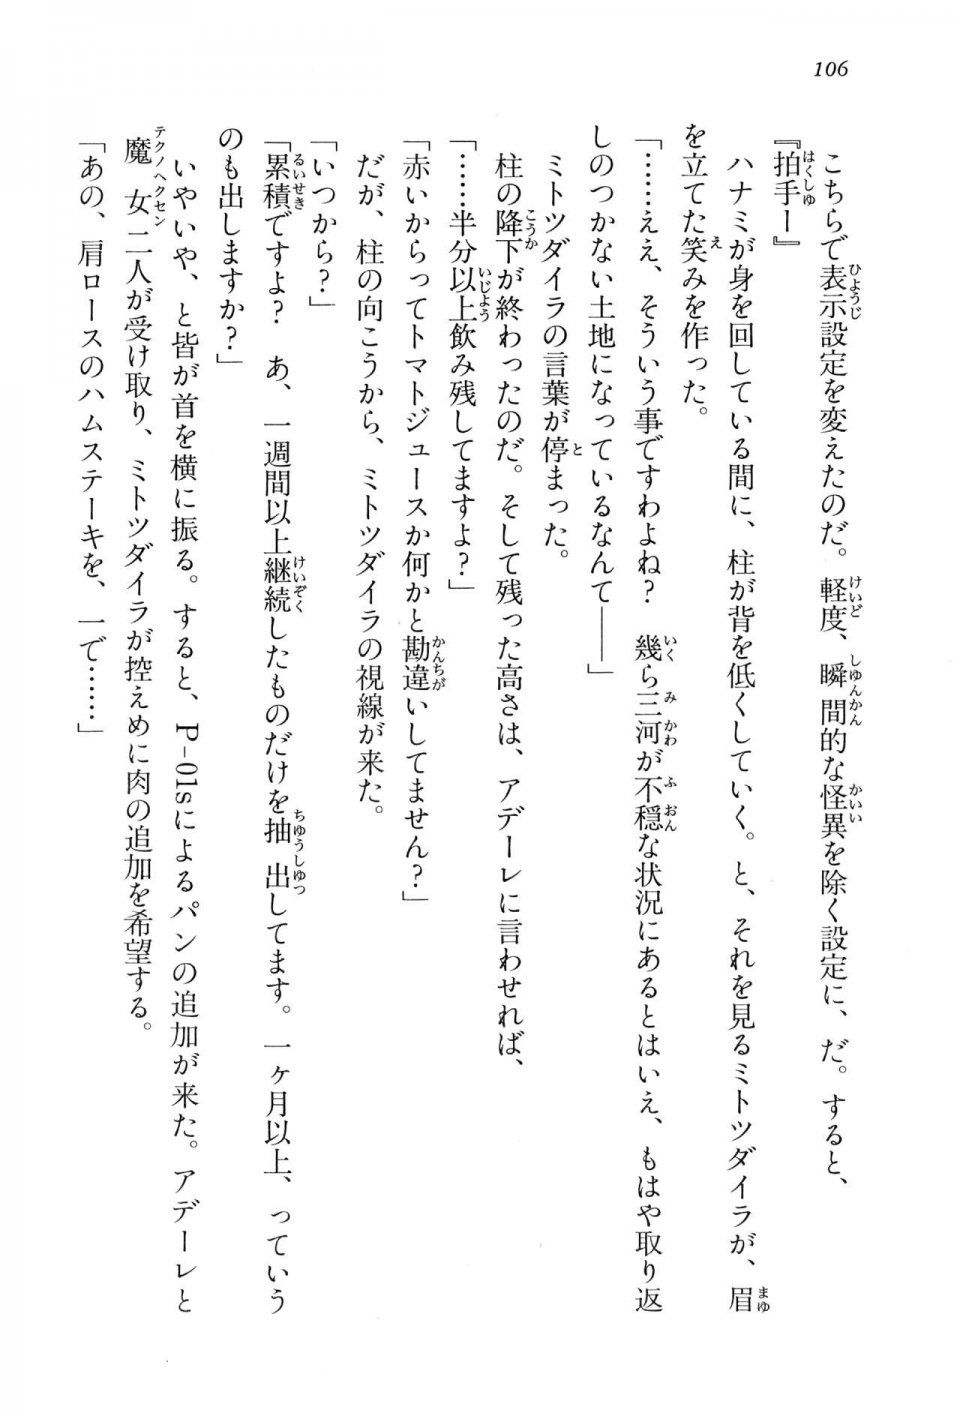 106
こちらで表示設定を変えたのだ。軽度、瞬間的な怪異を除く設定に、だ。すると、
『拍手ー』
ハナミが身を回している間に、柱が背を低くしていく。と、それを見るミトツダイラが、眉
を立てた笑みを作った。
「……ええ、そういう事ですわよね？　幾ら三河が不穏な状況にあるとはいえ、もはや取り返
しのつかない土地になっているなんて――」
ミトツダイラの言葉が停まった。
柱の降下が終わったのだ。そして残った高さは、アデーレに言わせれば、
「……半分以上飲み残してますよ？」
「赤いからってトマトジュースか何かと勘違いしてません？」
だが、柱の向こうから、ミトツダイラの視線が来た。
「いつから？」
「累積ですよ？　あ、一週間以上継続したものだけを抽出してます。一ヶ月以上、っていう
のも出しますか？」
いやいや、と皆が首を横に振る。すると、P-01sによるパンの追加が来た。アデーレと
魔女二人が受け取り、ミトツダイラが控えめに肉の追加を希望する。
「あの、肩ロースのハムステーキを、一で……」